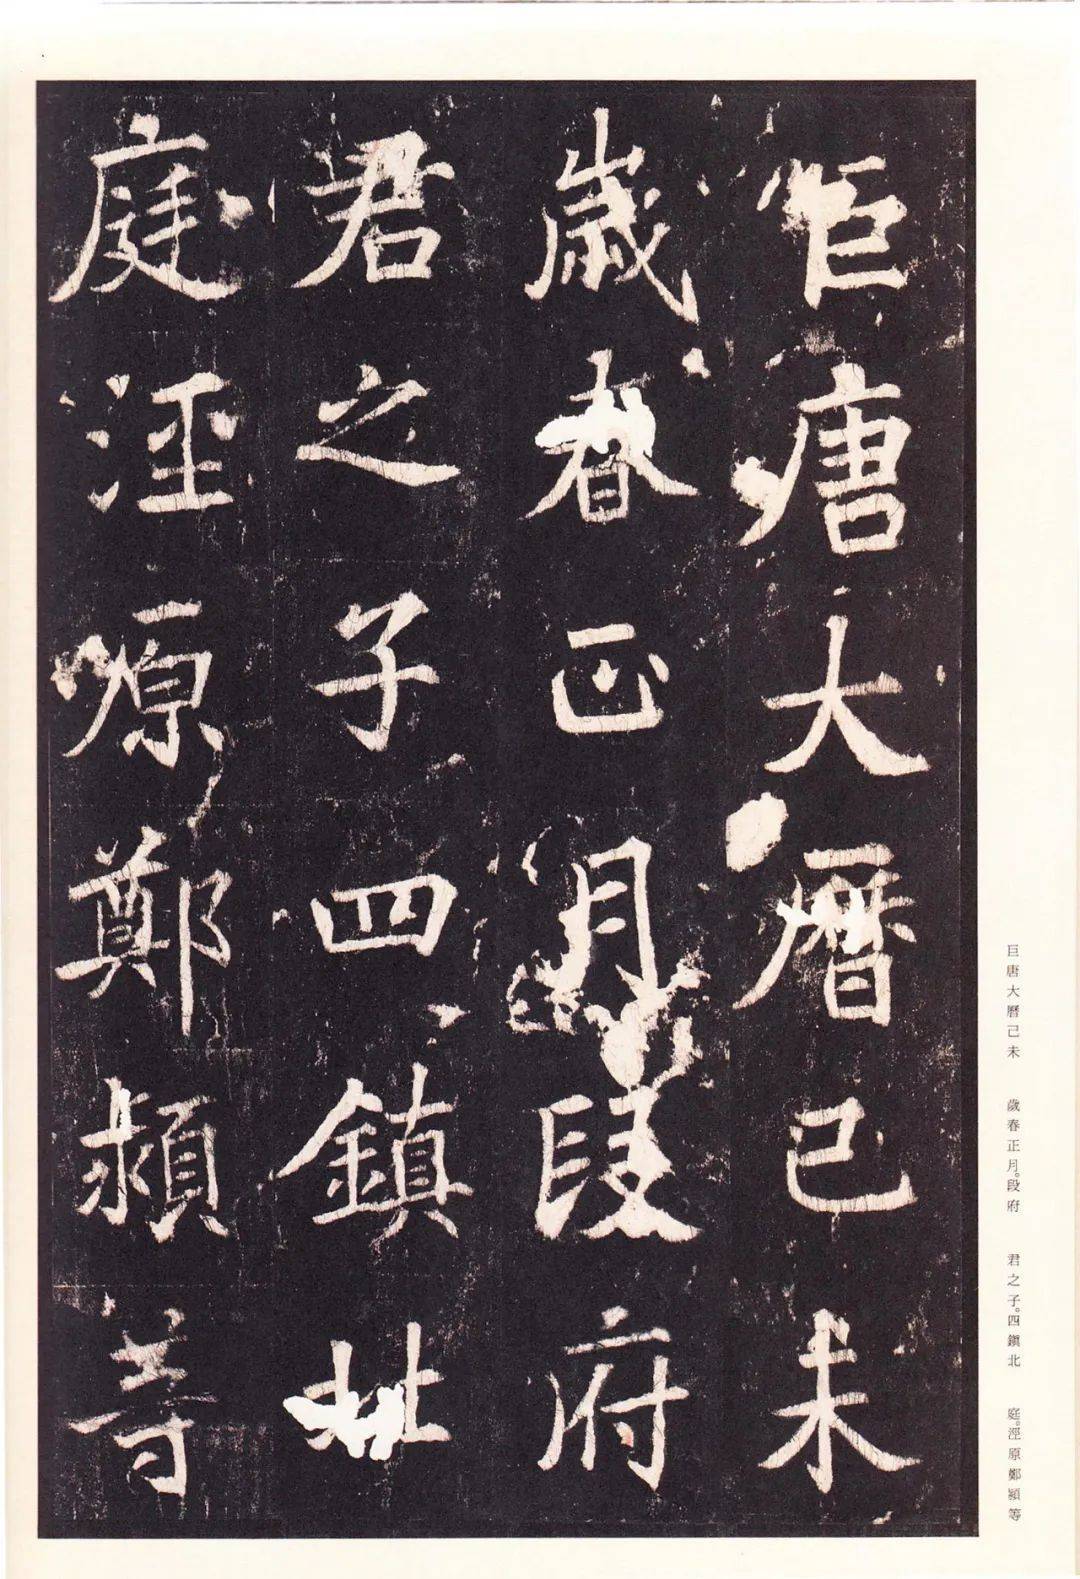 巨唐大曆己未
歲春正月段府
君之子四鎮北
庭涇原鄭頴等
巨唐大曆己未　歲春正月。段府　君之子。四鎮北　庭。涇原鄭穎等